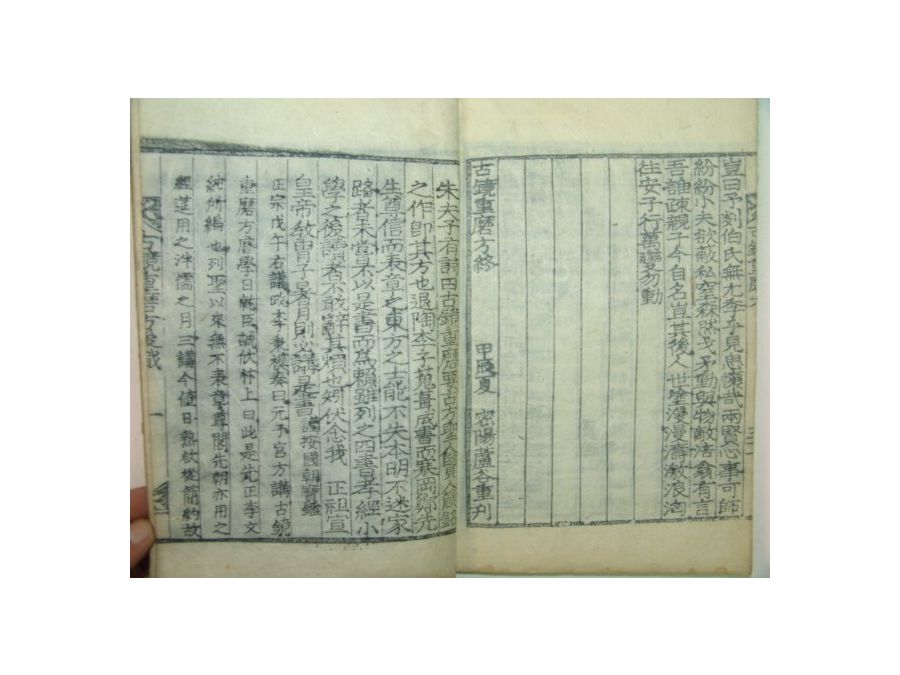 豈曰予刻伯氏無尤季子見思懷哉兩賢心事可師
紛紛小夫欲敵私窒森然戈矛動與物敵涪翁有言
吾誰疎親于今自名豈其後人世塗漫漫濤敧浪洶
往安子行萬變勿動
古鏡重磨方終
甲辰夏 密陽蘆谷重刊
朱夫子有詩曰古鏡重磨要古方聖賢人箴銘
之作卽其方也退陶李子蒐葺成書而寒岡鄭先
生尊信而表章之東方之士能不失本明不迷家
路者未嘗不以是書而爲賴雖列之四書孝經小
學之後讀者不敢辭其賴也矧伏念我 正祖宣
皇帝敎冑子暑月則必講是書 謹按國朝寶鑑
正宗戊午右議政李秉模奏曰元子宮方講古鏡
重磨方磨學日就臣誠伏 上曰此是先正李文
純所編也列聖以來無不表章尊閣先朝亦用之
經筵用之冲儒之月三講今値日熱欲從簡約故
古鏡重磨方後識 一